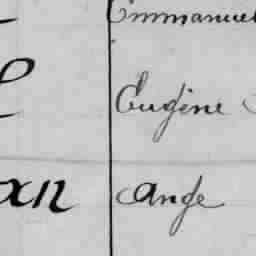 Emmanuel
Eugène
an Ange